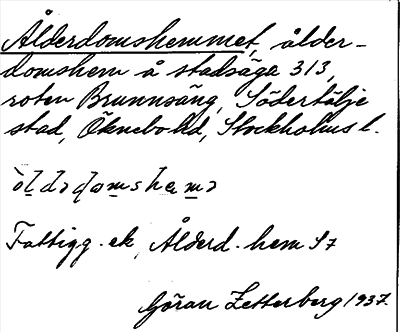 Ålderdomshemmet, ålder-
domshem å stadsäga 313,
roten Brunnsäng, Södertälje
stad, Öknebo hd, Stockholms l.
òldədomshemə
Fattigg. ek, Ålderd. hem 57
Göran Zetterberg 1937.